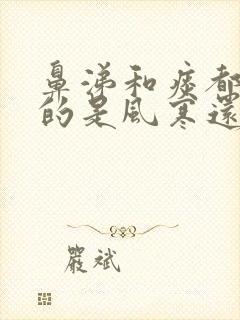 鼻涕和痰都
的是風寒還
嚴斌